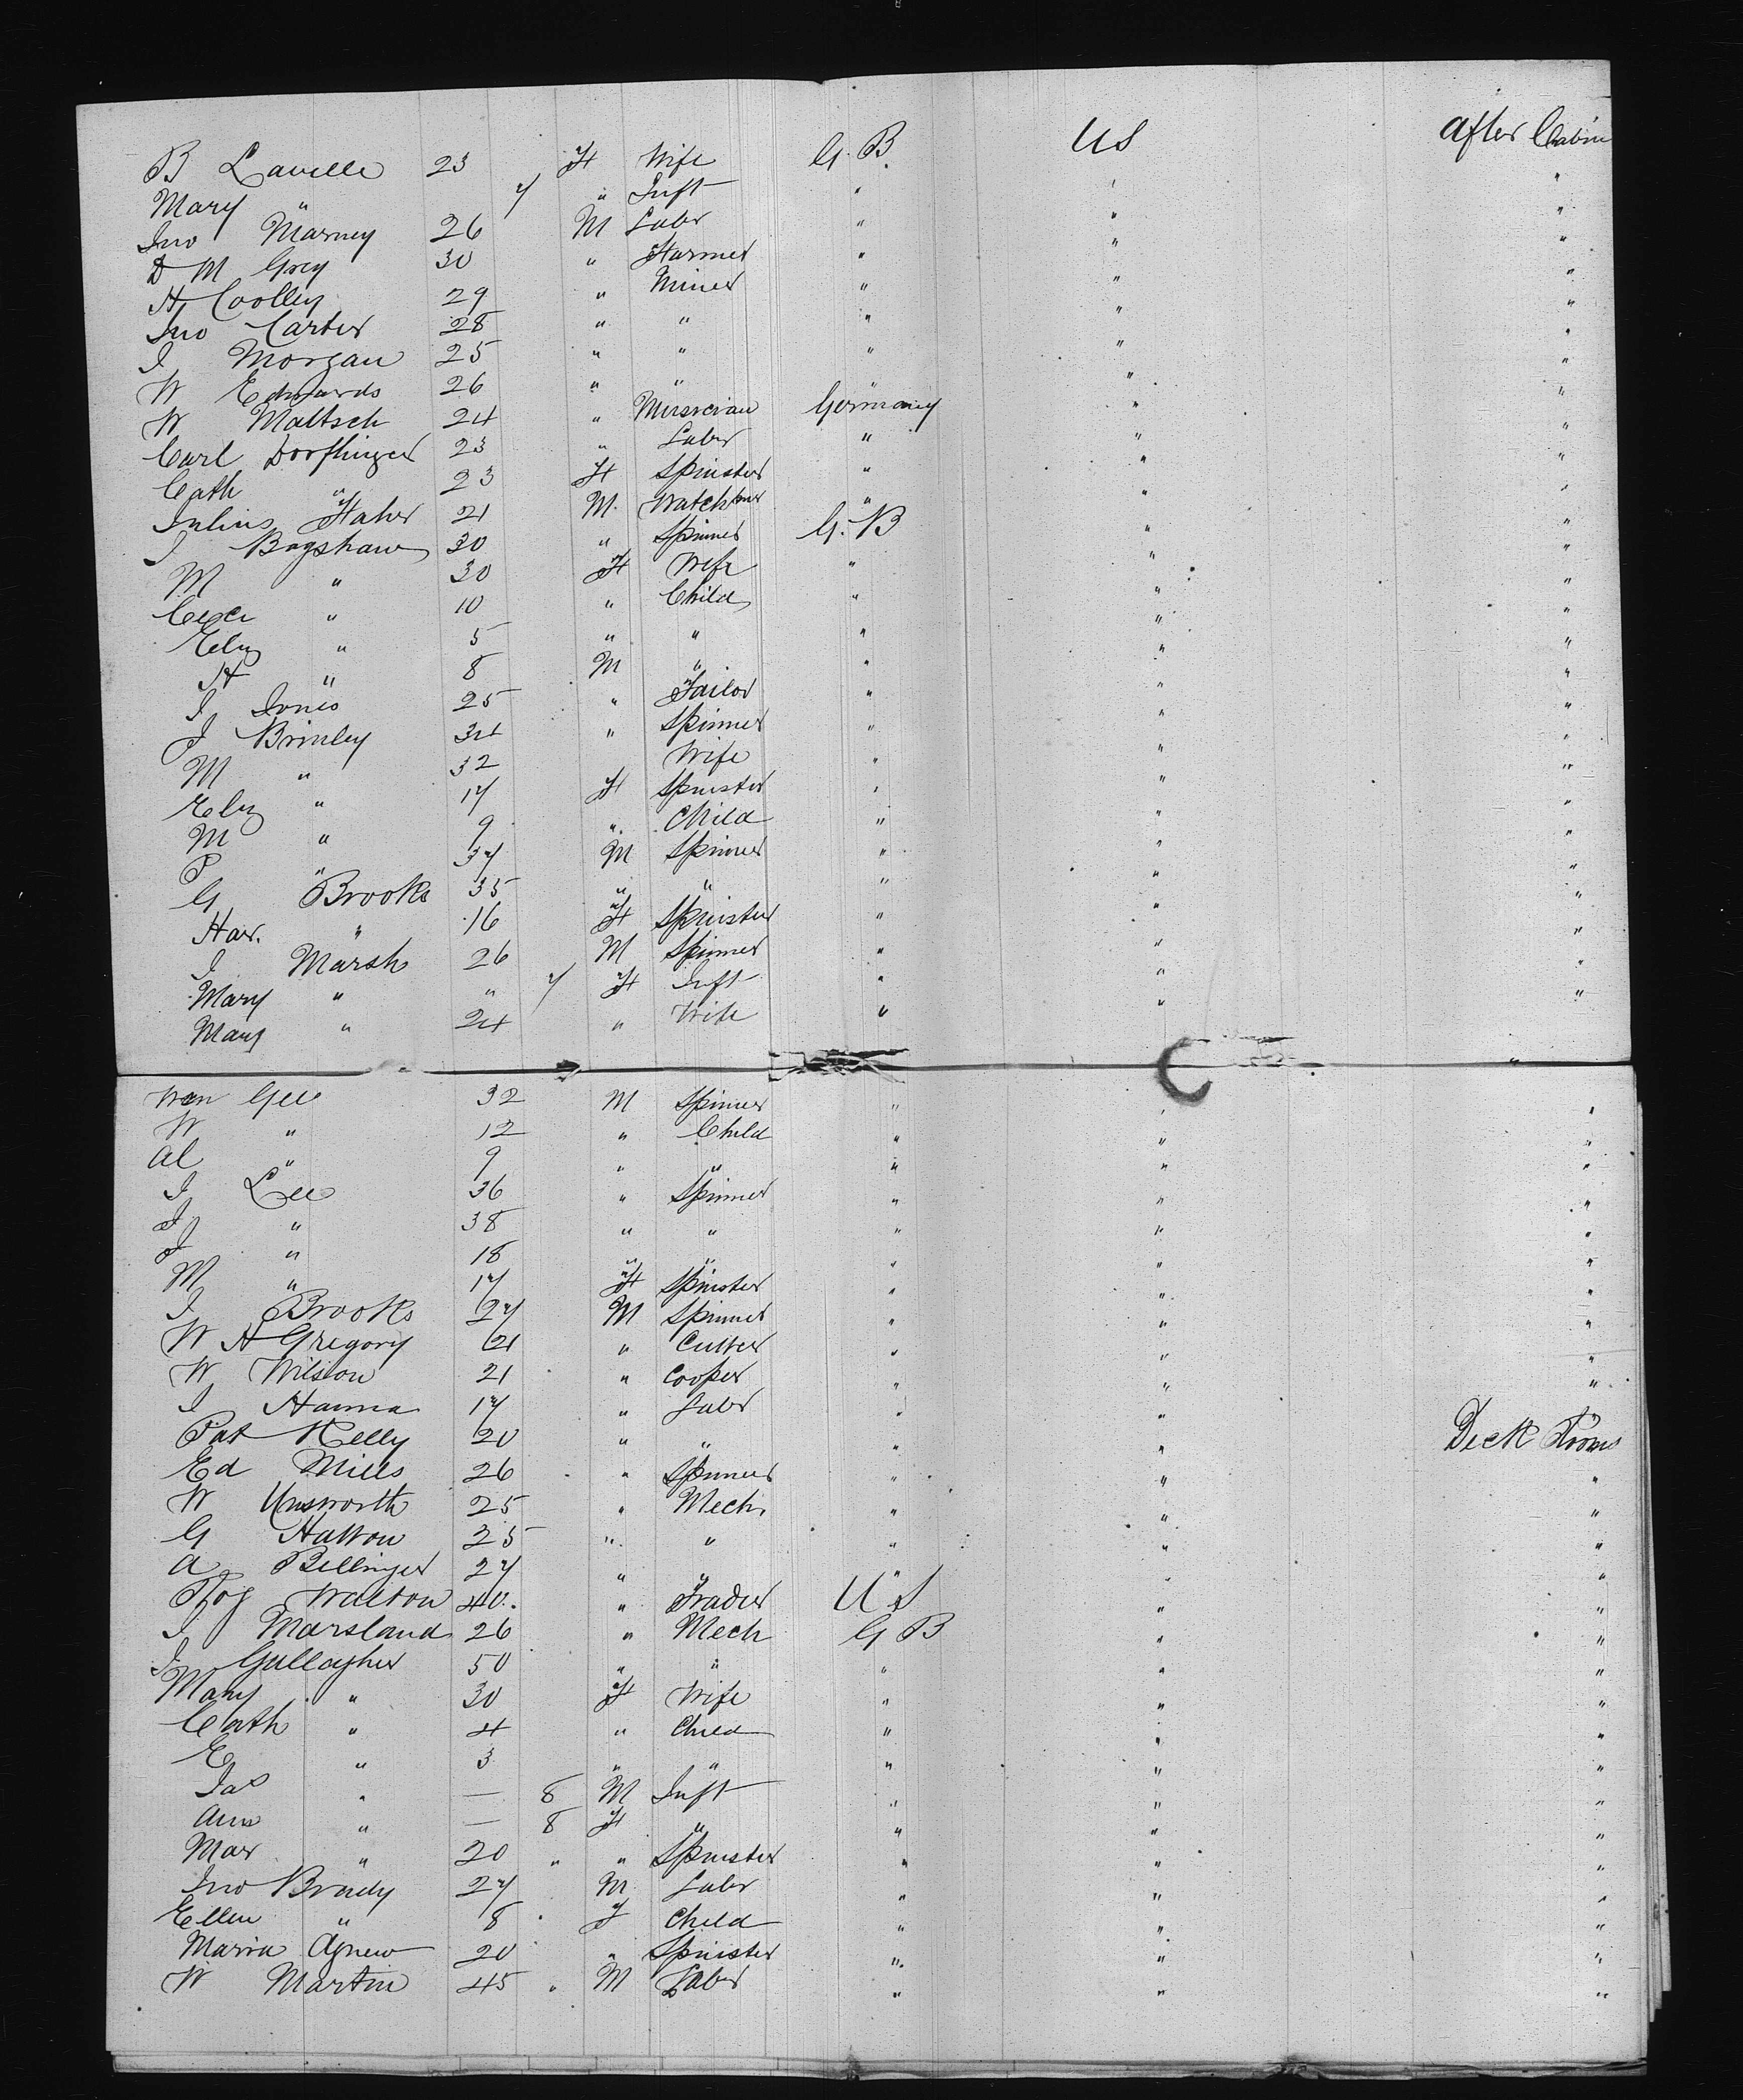 B Lavelle 23 F Wife G. B. US After Cabin
Mary " 7 " Inft " " "
Jno Marney 26 M Labr " " "
D M Grey 30 " Farmer " " "
H Coolley 29 " Miner " " "
Jno Carter 28 " " " " "
J Morgan 25 " " " " "
W Edwards 26 " " " " "
W Maltsch 24 " Musician Germany " "
Carl Dorflinger 23 " Labr " " "
Cath " 23 F Spinster " " "
Julius Faher 21 M. Watchmr " " "
J Bagshaw 30 " Spinner G. B " "
M " 30 F Wife " " "
" 10 " Child " " "
Eliz " 5 " " " " "
H " 8 M " " " "
J Jones 25 " Tailor " " "
J Brinley 34 " Spinner " " "
M " 32 Wife " " "
Eliz " 17 F Spinster " " "
M " 9 " Child " " "
P " 37 M Spinner " " "
G Brooks 35 " " " " "
Har. " 16 F Spinster " " "
J Marsh 26 M Spinner " " "
Mary " " 7 F Inft " " "
Mary " 24 " Wife " " "
Wm Gee 32 M Spinner " " "
W " 12 " Child " " "
Al " 9 " " " " "
J Lee 36 " Spinner " " "
J " 38 " " " " "
J " 18 " " " " "
M " 17 F Spinster " " "
J Brooks 27 M Spinner " " "
W H Gregory 21 " Cutter " " "
W Wilson 21 " Cooper " " "
J Hanna 17 " Labr " " "
Pat Kelly 20 " " " " Deck Rooms
Ed Mills 26 " Spinner " " "
W Unsworth 25 " Mech. " " "
G Hatton 25 " " " " "
A Bellinger 27 " " " " "
Walton 40. " Trader U S " "
J Marsland 26 " Mech G B " "
J Gallagher 50 " " " " "
Mary " 30 F Wife " " "
Cath " 4 " Child " " "
E " 3 " " " " "
Jas " — 8 M Inft " " "
Ann " — 8 F " " " "
Mar " 20 " " Spinster " " "
Jno Brady 27 M Labr " " "
Ellen " 8 " F Child " " "
Maria Agnew 20 " Spinster " " "
W Martin 45 " M Labr " " "